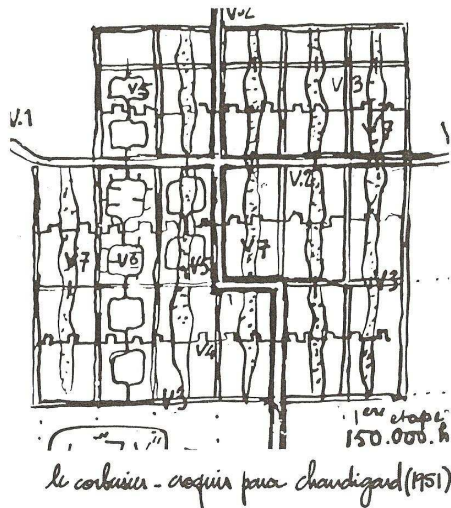 V.2
V5
V3
V.1
V7
V.2
V7
V7
V8
V5
V3
V4
V3
1ère etape
150.000.h
le corbusier - croquis para chandigard (1951)